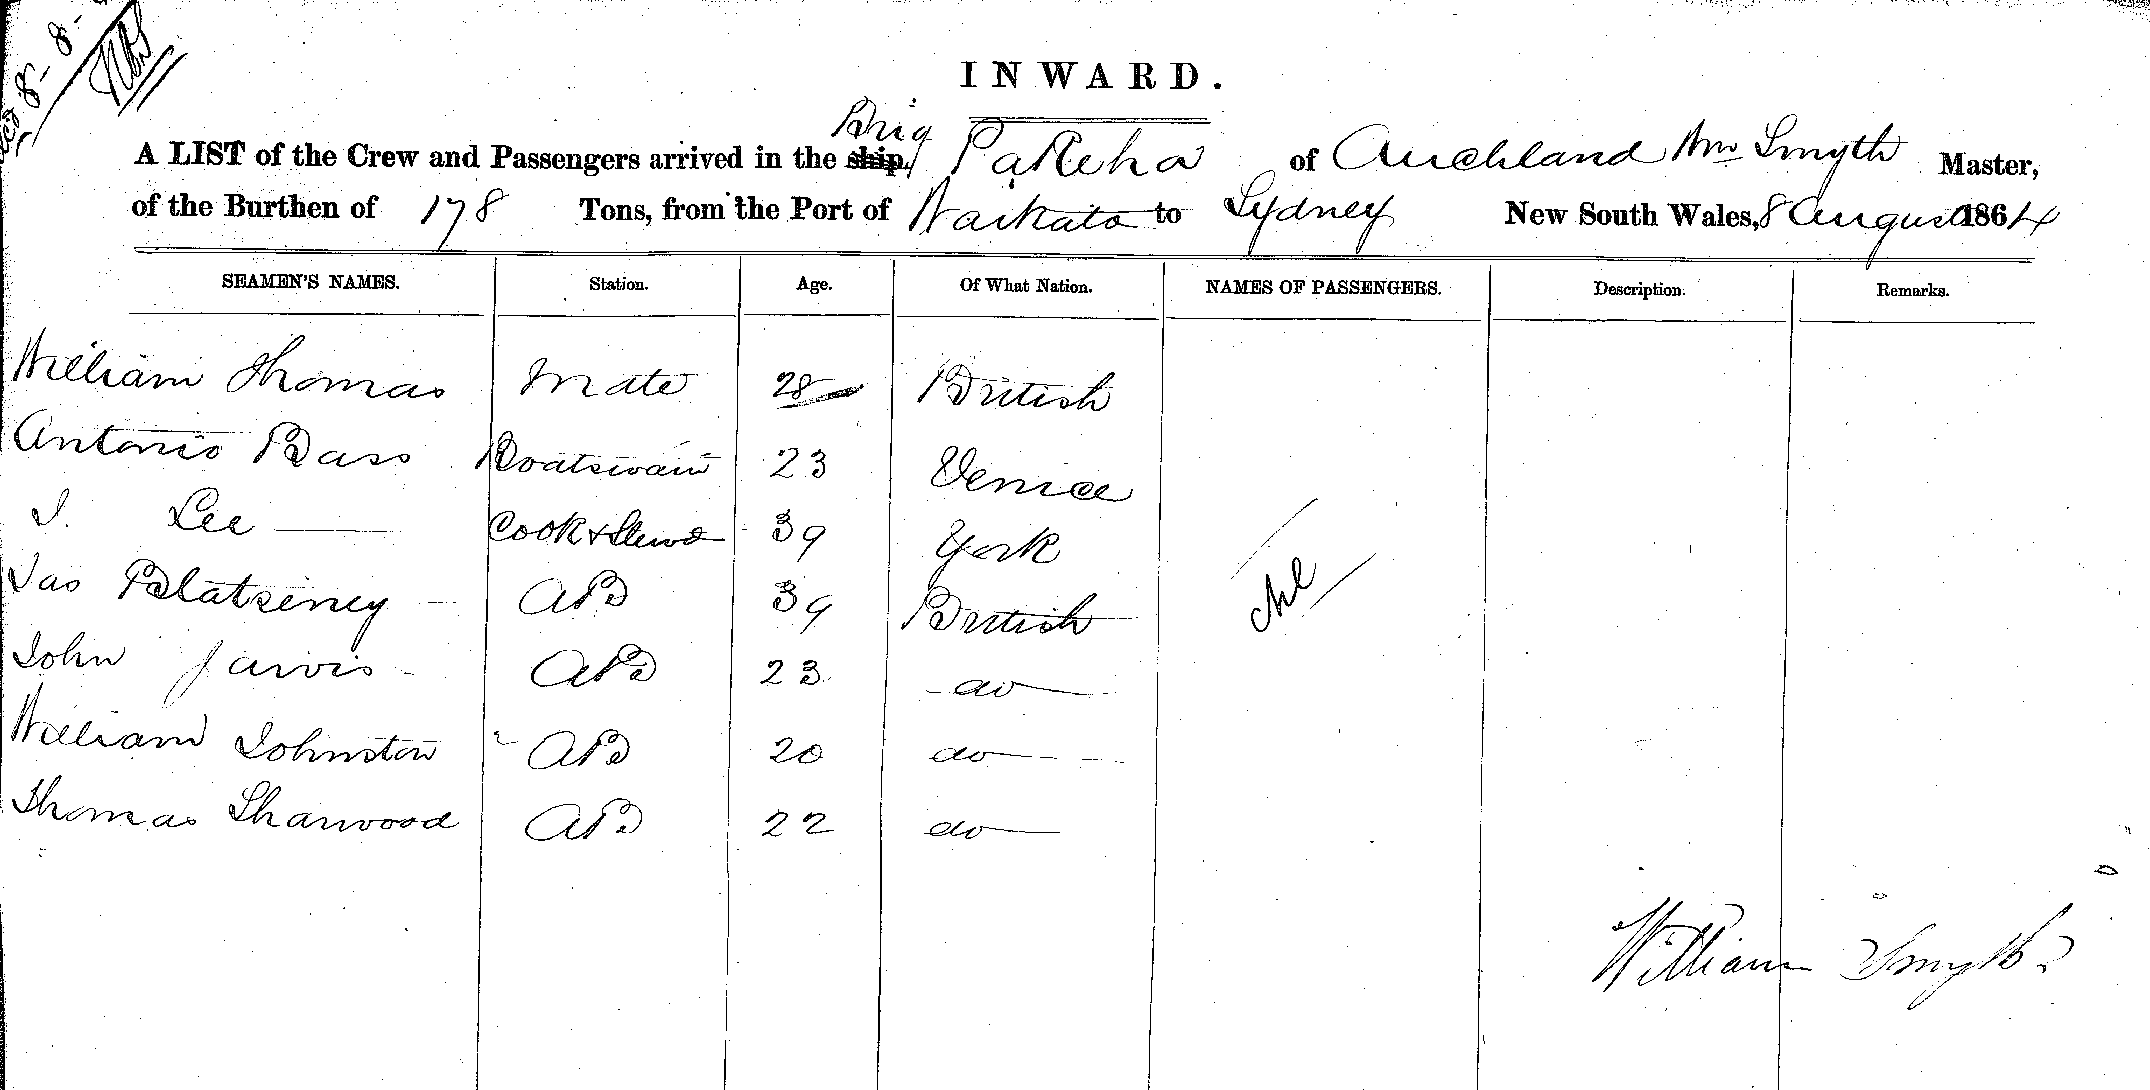 8-8-
INWARD.
Brig
A LIST of the Crew and Passengers arrived in the ship, Pakeha of Auckland Wm Smyth Master,
of the Burthen of 178 Tons, from the Port of Waikato to Sydney New South Wales, 8 August 1864
SEAMEN'S NAMES. Station. Age. Of What Nation. NAMES OF PASSENGERS. Description. Remarks.
William Thomas Mate 28 British
Antonio Bass Boatswain 23 Venice
J. Lee Cook & Stewd 39 York
Jas 39 British
AB
John Jarvis AB 23 do
William Johnston AB 20 do
Thomas Sharwood AB 22 do
William Smyth